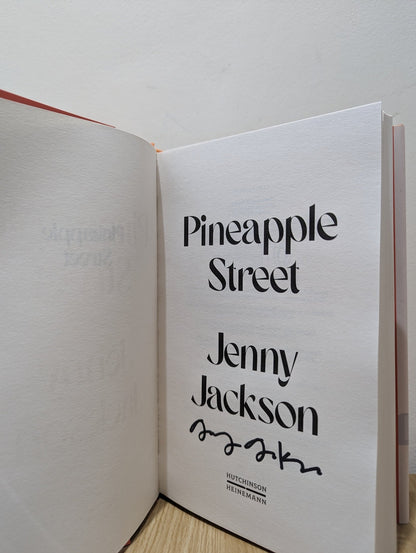 Pineapple
Street
Jenny
Jackson
HUTCHINSON
HEINEMANN